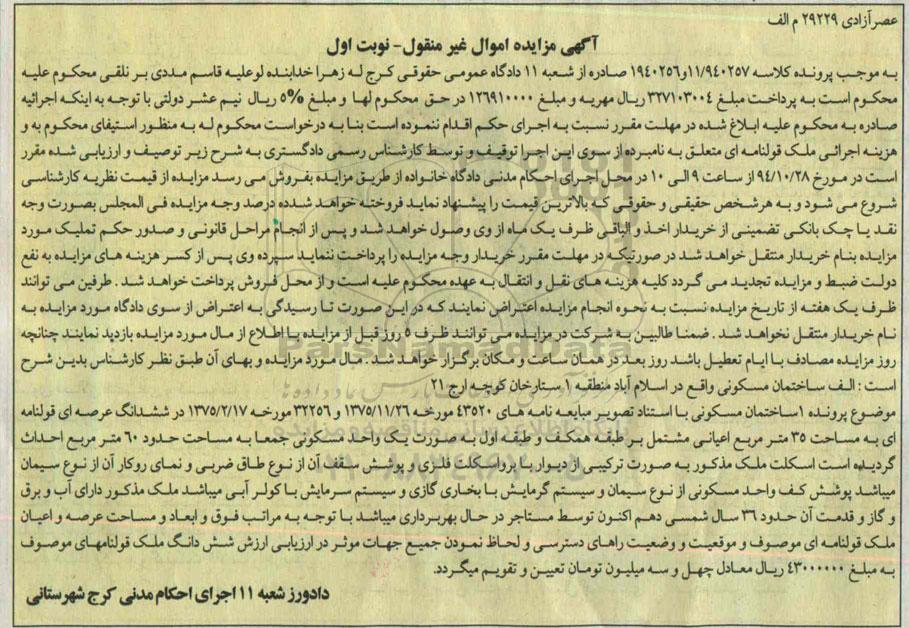 عصرآزادی ۲۹۲۲۹ م الف
آگهی مزایده اموال غیر منقول- نوبت اول
به موجب پرونده کلاسه ۱۱/۹۴۰۲۵۷و۱۹۴۰۲۵۶ صادره از شعبه ۱۱ دادگاه عمومی حقوقی کرج له زهرا خدابنده لوعلیه قاسم مددی بر نلقی محکوم علیه
محکوم است به پرداخت مبلغ ۳۲۷۱۰۳۰۰۴ ریال مهریه و مبلغ ۱۲۶۹۱۰۰۰۰ در حق محکوم لها و مبلغ ۵% ریال نیم عشر دولتی با توجه به اینکه اجرائیه
صادره به محکوم علیه ابلاغ شده در مهلت مقرر نسبت به اجرای حکم اقدام ننموده است بنا به درخواست محکوم له به منظور استیفای محکوم به و
هزینه اجرائی ملک قولنامه ای متعلق به نامبرده از سوی این اجرا توقیف و توسط کارشناس رسمی دادگستری به شرح زیر توصیف و ارزیابی شده مقرر
است در مورخ ۹۴/۱۰/۲۸ از ساعت ۹ الی ۱۰ در محل اجرای احکام مدنی دادگاه خانواده از طریق مزایده بفروش می رسد مزایده از قیمت نظریه کارشناسی
شروع می شود و به هرشخص حقیقی و حقوقی که بالاترین قیمت را پیشنهاد نماید فروخته خواهد شدده درصد وجه مزایده فی المجلس بصورت وجه
نقد یا چک بانکی تضمینی از خریدار اخذ و الباقی ظرف یک ماه از وی وصول خواهد شد و پس از انجام مراحل قانونی و صدور حکم تملیک مورد
مزایده بنام خریدار منتقل خواهد شد در صورتیکه در مهلت مقرر خریدار وجه مزایده را پرداخت ننماید سپرده وی پس از کسر هزینه های مزایده به نفع
دولت ضبط و مزایده تجدید می گردد کلیه هزینه های نقل و انتقال به عهده محکوم علیه است و از محل فروش پرداخت خواهد شد . طرفین می توانند
ظرف یک هفته از تاریخ مزایده نسبت به نحوه انجام مزایده اعتراض نمایند که در این صورت تا رسیدگی به اعتراض از سوی دادگاه مورد مزایده به
نام خریدار منتقل نخواهد شد . ضمنا طالبین به شرکت در مزایده می توانند ظرف ۵ روز قبل از مزایده با اطلاع از مال مورد مزایده بازدید نمایند چنانچه
روز مزایده مصادف با ایام تعطیل باشد روز بعد در همان ساعت و مکان برگزار خواهد شد . مال مورد مزایده و بهای آن طبق نظر کارشناس بدین شرح
است : الف ساختمان مسکونی واقع در اسلام آباد منطقه ۱ ستارخان کوچه ارج ۲۱
موضوع پرونده ۱ساختمان مسکونی با استناد تصویر مبایعه نامه های ۴۳۵۲۰ مورخه ۱۳۷۵/۱۱/۲۶ و ۳۲۲۵۶ مورخه ۱۳۷۵/۲/۱۷ در ششدانگ عرصه ای قولنامه
ای به مساحت ۳۵ متر مربع اعیانی مشتمل بر طبقه همکف و طبقه اول به صورت یک واحد مسکونی جمعا به مساحت حدود ۶۰ متر مربع احداث
گردیده است اسکلت ملک مذکور به صورت ترکیبی از دیوار با برواسکلت فلزی و پوشش سقف آن از نوع طاق ضربی و نمای روکار آن از نوع سیمان
میباشد پوشش کف واحد مسکونی از نوع سیمان و سیستم گرمایش با بخاری گازی و سیستم سرمایش با کولر آبی میباشد ملک مذکور دارای آب و برق
و گاز و قدمت آن حدود ۳۶ سال شمسی دهم اکنون توسط مستاجر در حال بهربرداری میباشد با توجه به مراتب فوق و ابعاد و مساحت عرصه و اعیان
ملک قولنامه ای موصوف و موقعیت و وضعیت راهای دسترسی و لحاظ نمودن جمیع جهات موثر در ارزیابی ارزش شش دانگ ملک قولنامهای موصوف
به مبلغ ۴۳۰۰۰۰۰۰ ریال معادل چهل و سه میلیون تومان تعیین و تقویم میگردد.
دادورز شعبه ۱۱ اجرای احکام مدنی کرج شهرستانی